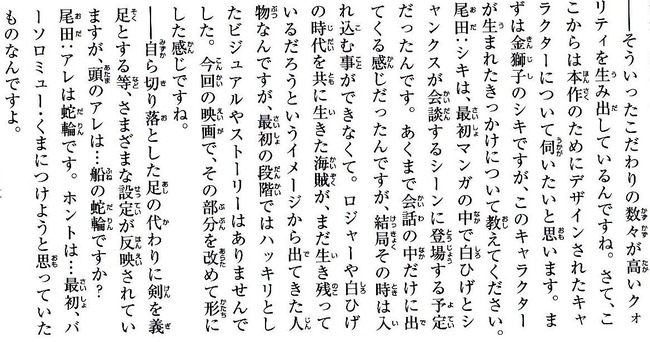 ──そういったこだわりの数々が高いクォ
リティを生み出しているんですね。さて、こ
こからは本作のためにデザインされたキャ
ラクターについて伺いたいと思います。ま
ずは金獅子のシキですが、このキャラクター
が生まれたきっかけについて教えてください。
尾田:シキは、最初マンガの中で白ひげとシ
ャンクスが会談するシーンに登場する予定
だったんです。あくまで会話の中だけに出
てくる感じだったんですが、結局その時は入
れ込む事ができなくて。ロジャーや白ひげ
の時代を共に生きた海賊が、まだ生き残って
いるだろうというイメージから出てきた人
物なんですが、最初の段階ではハッキリとし
たビジュアルやストーリーはありませんで
した。今回の映画で、その部分を改めて形に
した感じですね。
──自ら切り落とした足の代わりに剣を義
足とする等、さまざまな設定が反映されてい
ますが、頭のアレは…船の蛇輪ですか?
尾田:アレは蛇輪です。ホントは…最初、バ
ーソロミュー・くまにつけようと思っていた
ものなんですよ。